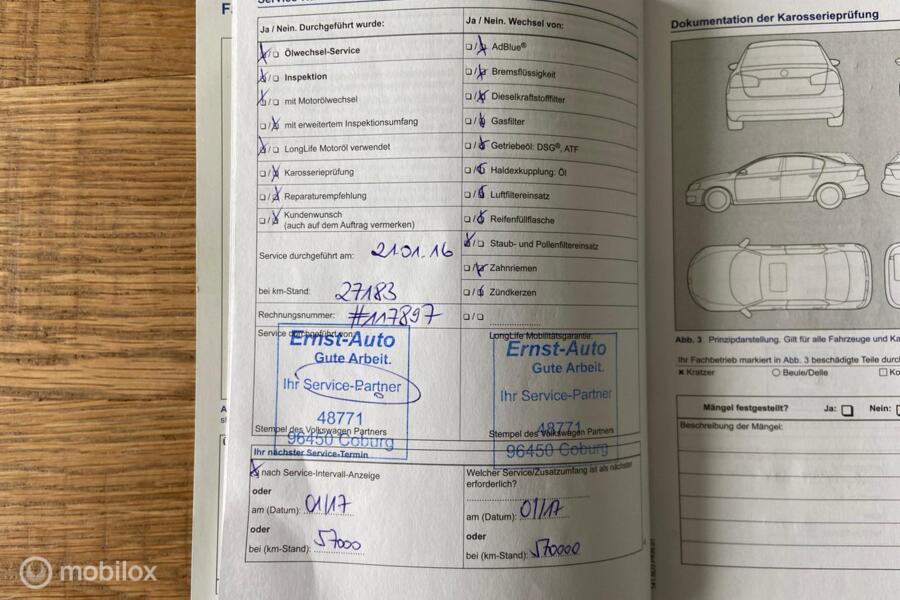 F
Ja / Nein. Durchgeführt wurde:
Ölwechsel-Service
Inspektion
mit Motorölwechsel
mit erweitertem Inspektionsumfang
LongLife Motoröl verwendet
Karosserieprüfung
Reparaturempfehlung
Kundenwunsch
(auch auf dem Auftrag vermerken)
Service durchgeführt am: 21.01.16
bei km-Stand: 27183
Rechnungsnummer: #117897
Service durchgeführt von:
Ernst-Auto
Gute Arbeit.
Ihr Service-Partner
48771
Stempel des Volkswagen Partners
96450 Coburg
Ja / Nein. Wechsel von:
AdBlue®
Bremsflüssigkeit
Dieselkraftstofffilter
Gasfilter
Getriebeöl: DSG®, ATF
Haldexkupplung: Öl
Luftfiltereinsatz
Reifenfüllflasche
Staub- und Pollenfiltereinsatz
Zahnriemen
Zündkerzen
LongLife Mobilitätsgarantie
Ernst-Auto
Gute Arbeit.
Ihr Service-Partner
48771
Stempel des Volkswagen Partners
96450 Coburg
Ihr nächster Service-Termin
nach Service-Intervall-Anzeige
oder
am (Datum): 01/17
oder
bei (km-Stand): 57000
Welcher Service/Zusatzumfang ist als nächster
erforderlich?
am (Datum): 01/17
oder
bei (km-Stand): 570000
Dokumentation der Karosserieprüfung
Abb. 3 Prinzipdarstellung. Gilt für alle Fahrzeuge und
Ihr Fachbetrieb markiert in Abb. 3 beschädigte Teile
Kratzer Beule/Delle
Mängel festgestellt? Ja: Nein:
Beschreibung der Mängel:
mobilox